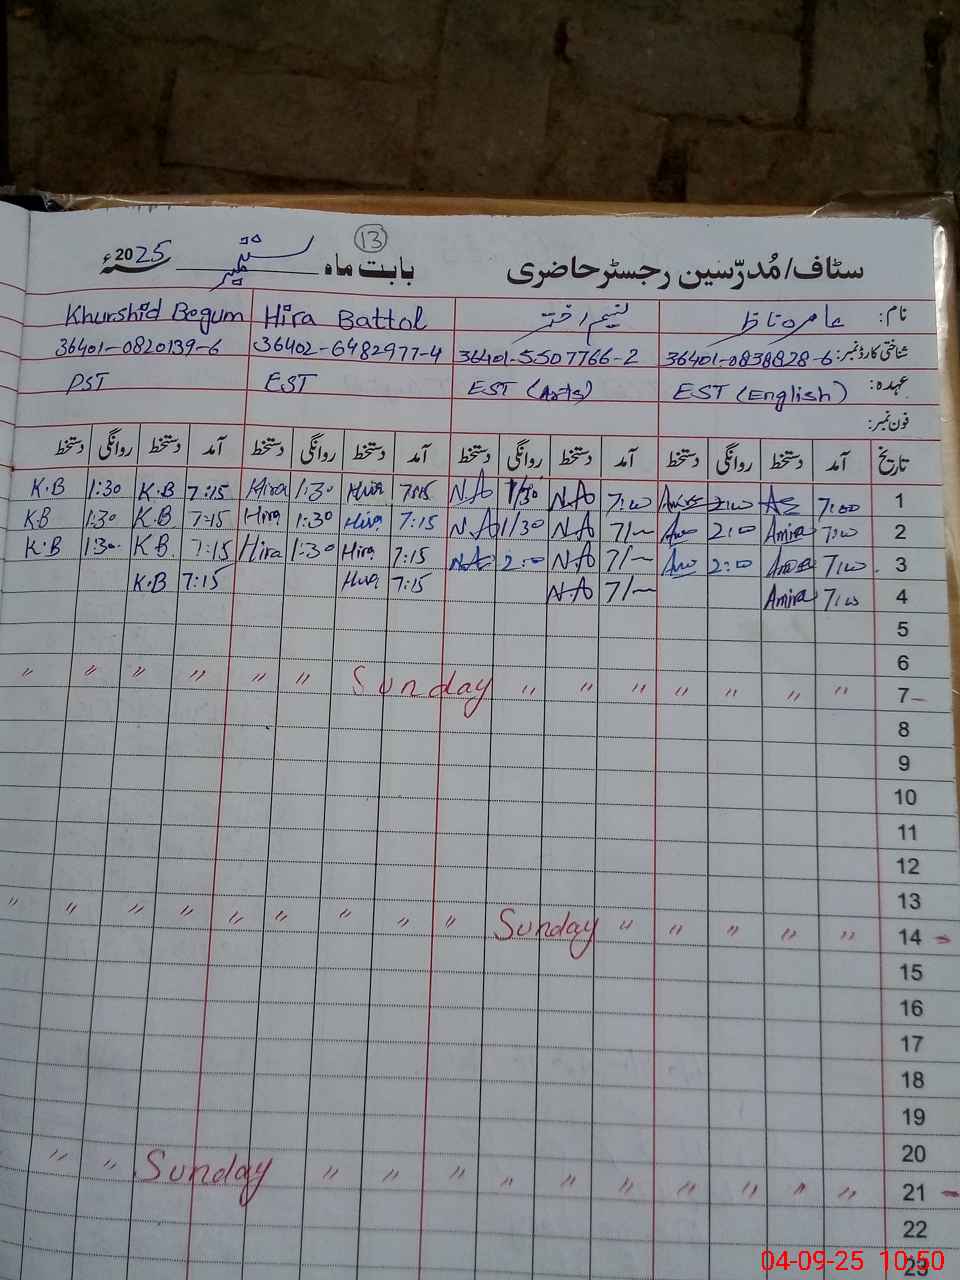 سٹاف/مُدرّسین رجسٹر حاضری بابت ماہ ستمبر سنہ 2025ء
13
نام: عامرہ ناز نسیم اختر Hira Battol Khurshid Begum
شناختی کارڈ نمبر: 36401-0838828-6 36401-5507766-2 36402-6482977-4 36401-0820139-6
عہدہ: EST (English) EST (Arts) EST PST
فون نمبر:
تاریخ آمد دستخط روانگی دستخط آمد دستخط روانگی دستخط آمد دستخط روانگی دستخط آمد دستخط روانگی دستخط
1 7:00 2:00 7:00 NA 1/30 NA 7:15 Hira 1:30 Hira 7:15 K.B 1:30 K.B
2 7:00 Amira 2:00 7/— NA 1/30 NA 7:15 Hira 1:30 Hira 7:15 K.B 1:30 KB
3 7:00 2:0 7/— NA 2:0 NA 7:15 Hira 1:30 Hira 7:15 K.B 1:30 K.B
4 7:00 Amira 7/— NA 7:15 Hira 7:15 K.B
5
6
7 — " " " " " " " Sunday " " " " " "
8
9
10
11
12
13
14 - " " " " " Sunday " " " " " " " " "
15
16
17
18
19
20
21 - " " " " " " " " " " Sunday " "
22
23
04-09-25 10:50